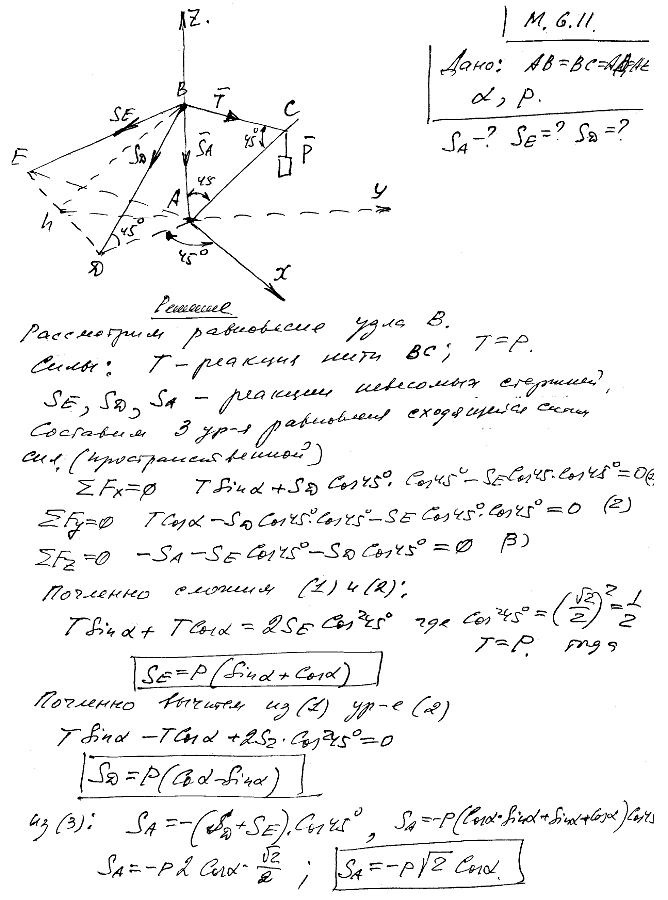 М. 6.11.
Дано: AB=BC=AD=AE
α, P.
S_A-? S_E=? S_D=?
z.
B
T̄
C
S_E
S_D
S̄_A
45°
P̄
E
45
A
y
h
45°
D
45°
x
Решение
Рассмотрим равновесие узла B.
Силы: T - реакция нити BC; T=P.
S_E, S_D, S_A - реакции невесомых стержней,
Составим 3 ур-я равновесия сходящейся системы
сил (пространственной)
ΣFx=0 T Sinα + S_D Cos45°. Cos45° - S_E Cos45. Cos45°=0
ΣFy=0 T Cosα - S_D Cos45°. Cos45° - S_E Cos45°. Cos45°=0 (2)
ΣFz=0 -S_A - S_E Cos45° - S_D Cos45°=0 (3)
Почленно сложим (1) и (2):
T Sinα + T Cosα = 2S_E Cos²45° где Cos²45°=(√2/2)²=1/2
T=P. тогда
S_E=P(Sinα+Cosα)
Почленно вычтем из (1) ур-е (2)
T Sinα - T Cosα + 2S_2. Cos²45°=0
S_D=P(Cosα-Sinα)
из (3): S_A=-(S_D+S_E). Cos45°, S_A=-P(Cosα-Sinα+Sinα+Cosα)Cos45
S_A=-P2 Cosα. √2/2; S_A=-P√2 Cosα.